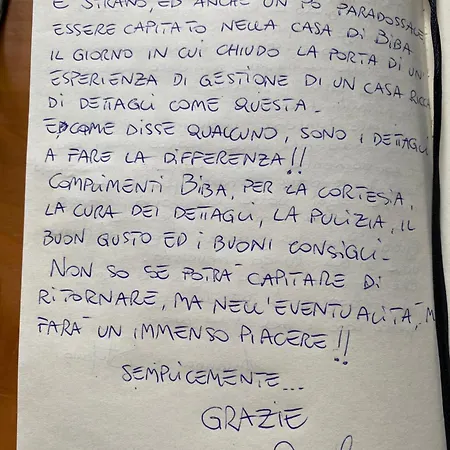 E STRANO, ED ANCHE UN PO PARADOSSALE
ESSERE CAPITATO NELLA CASA DI BIBA
IL GIORNO IN CUI CHIUDO LA PORTA DI UN
ESPERIENZA DI GESTIONE DI UN CASA RICCA
DI DETTAGLI COME QUESTA.
E COME DISSE QUALCUNO, SONO I DETTAGLI
A FARE LA DIFFERENZA!!
COMPLIMENTI BIBA, PER LA CORTESIA,
LA CURA DEI DETTAGLI, LA PULIZIA, IL
BUON GUSTO ED I BUONI CONSIGLI.
NON SO SE POTRA' CAPITARE DI
RITORNARE, MA NELL'EVENTUALITA', M
FARA' UN IMMENSO PIACERE!!
SEMPLICEMENTE...
GRAZIE